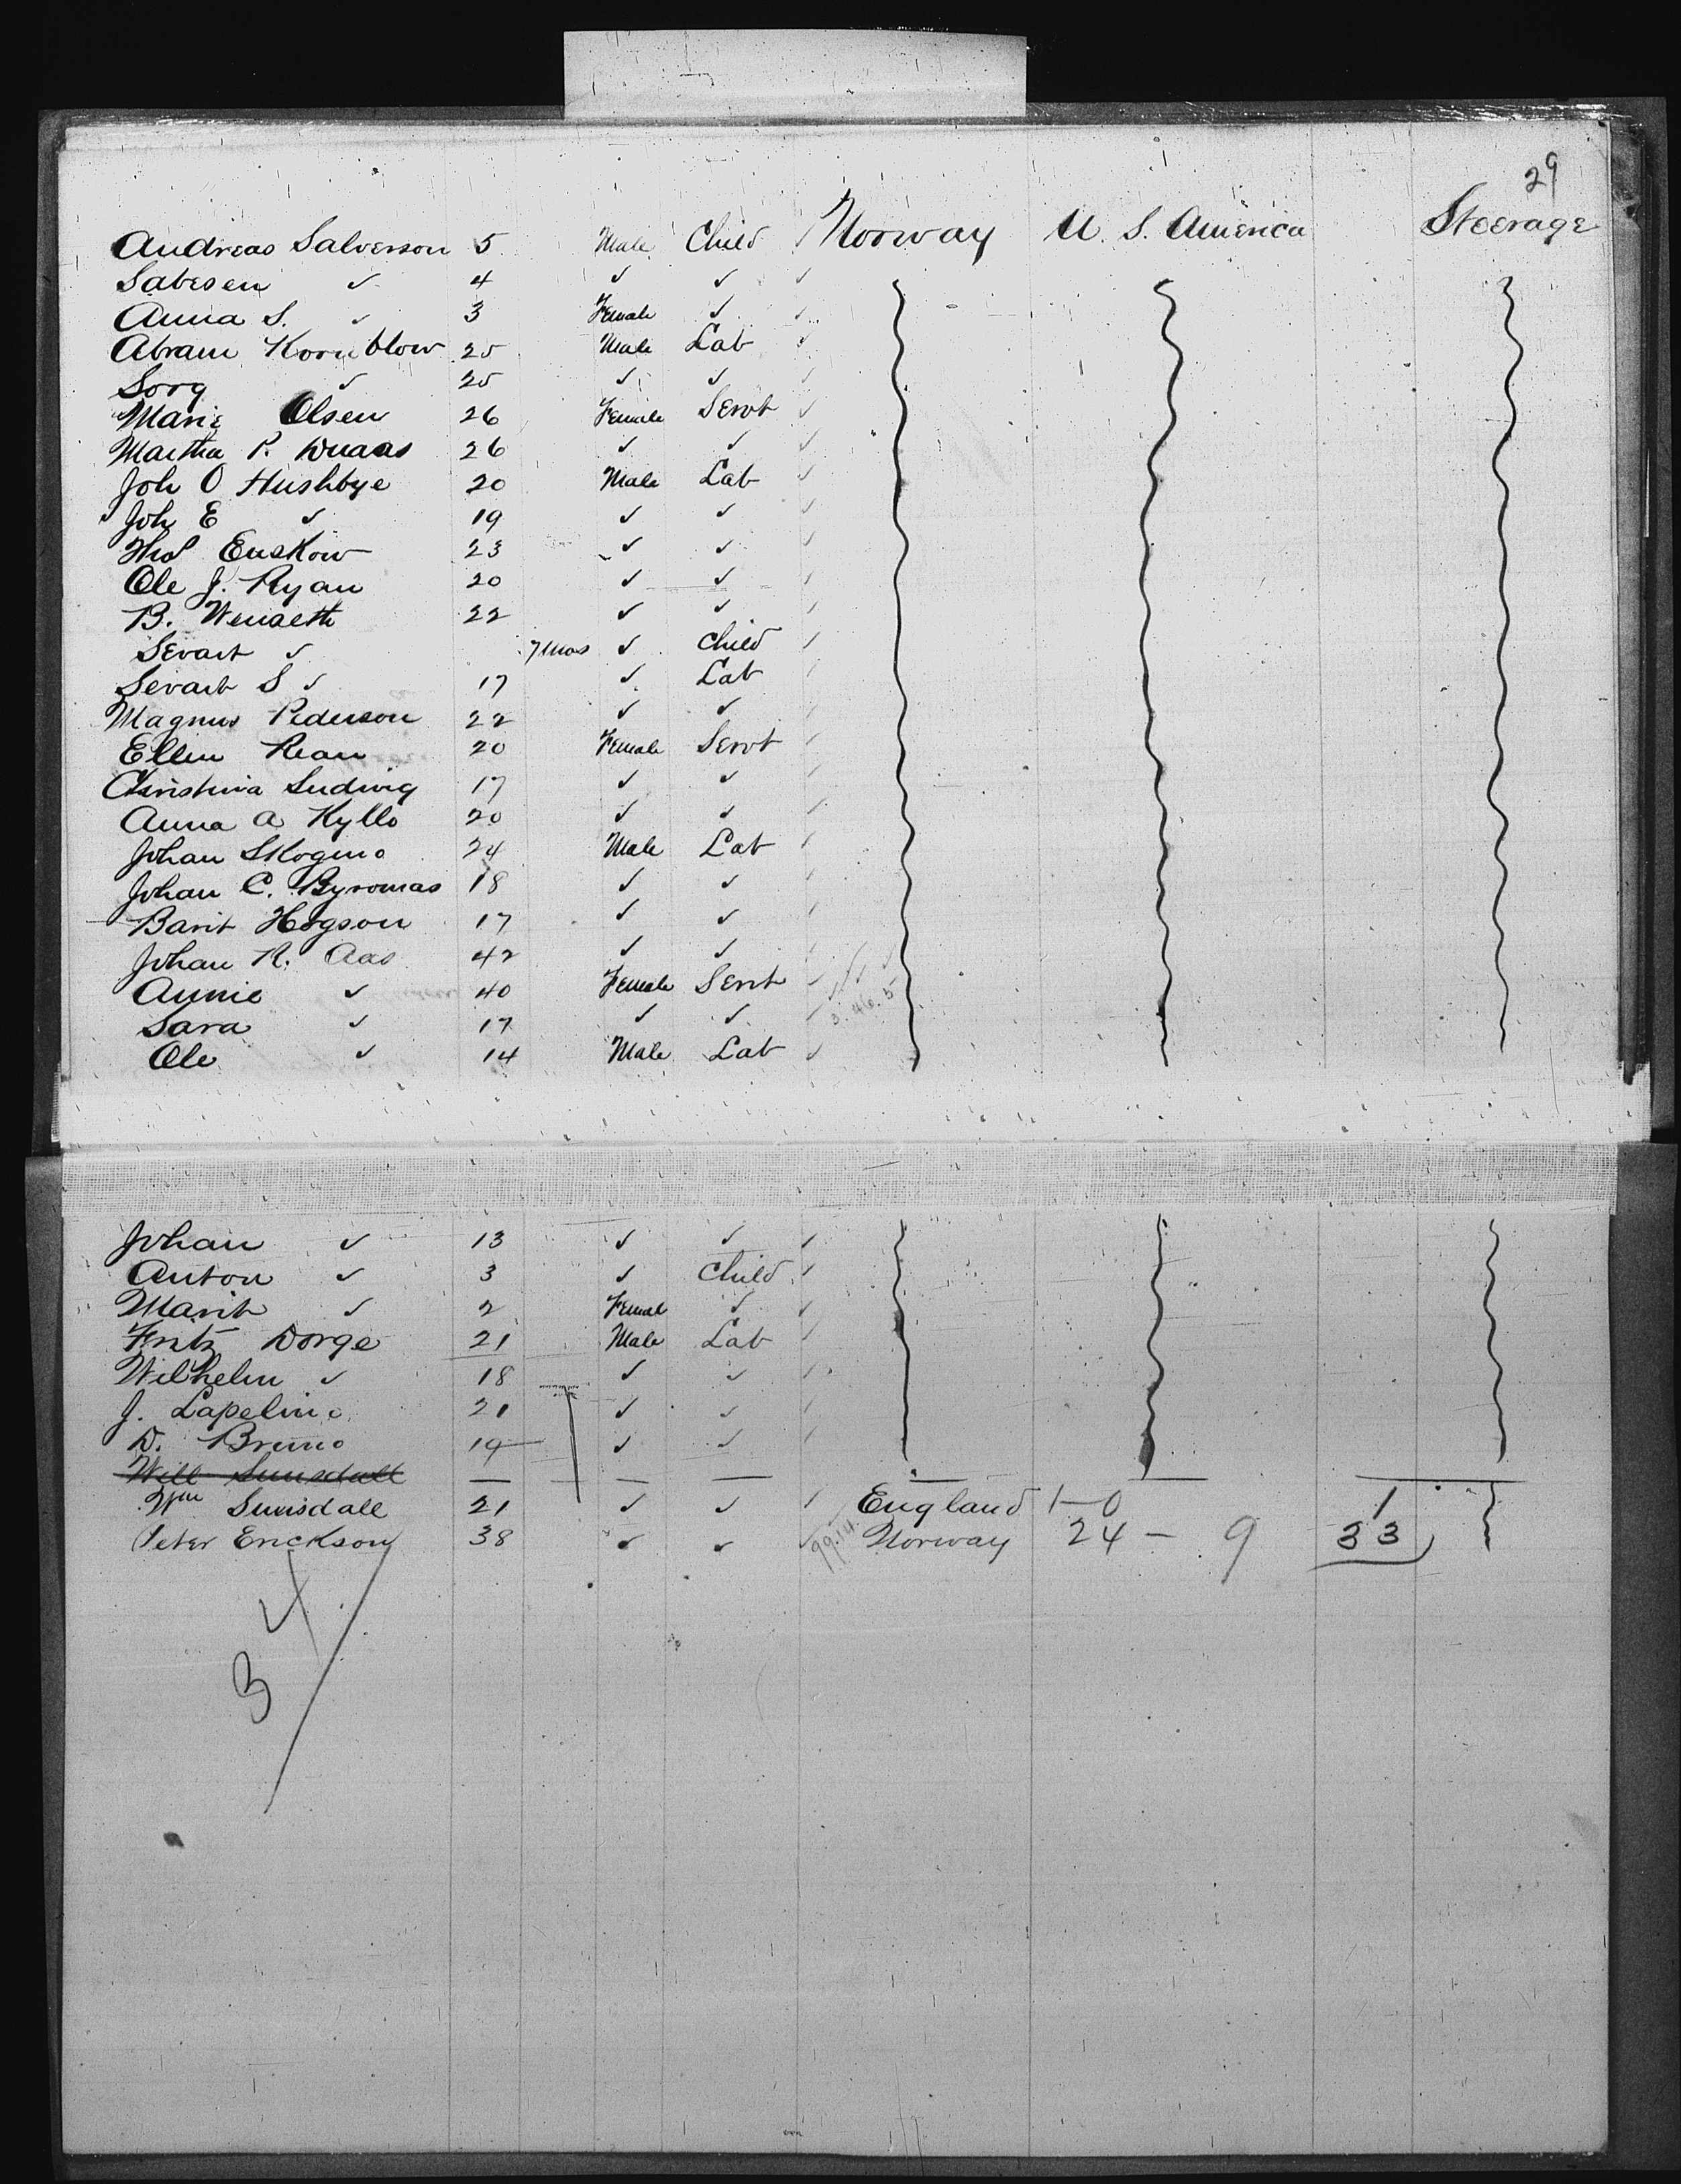 29
Andreas Salverson 5 Male Child Norway U. S. America Steerage
Sabesen ✓ 4 ✓ ✓
Anna S. ✓ 3 Female ✓
Abram Kornblow 25 Male Lab
Sorg ✓ 25 ✓ ✓
Marie Olsen 26 Female Servt
Martha P. Duaas 26 ✓ ✓
Joh O Hushbye 20 Male Lab
Joh E ✓ 19 ✓ ✓
Enskow 23 ✓ ✓
Ole J. Ryan 20 ✓ ✓
B. Wenseth 22 ✓ ✓
Sevart ✓ 7 mos ✓ Child
Sevart S ✓ 17 ✓ Lab
Magnus Pederson 22 ✓ ✓
Ellen Rean 20 Female Servt
Christina Ludwig 17 ✓ ✓
Anna A Kyllo 20 ✓ ✓
Johan Skogmo 24 Male Lab
Johan C. Byromas 18 ✓ ✓
Barit Hogson 17 ✓ ✓
Johan R. Aas 42 ✓ ✓
Annie ✓ 40 Female Servt
Sara ✓ 17 ✓ ✓
Ole ✓ 14 Male Lab
Johan ✓ 13 ✓ ✓
Anton ✓ 3 ✓ Child
Marit ✓ 2 Female ✓
Fritz Dorge 21 Male Lab
Wilhelm ✓ 18 ✓ ✓
J. Lapelino 21 ✓ ✓
D. Bruno 19 ✓ ✓
Will Sunsdall — — —
Wm Sunsdale 21 ✓ ✓ England 1—0 1
Peter Erickson 38 ✓ ✓ Norway 24 — 9 33
34